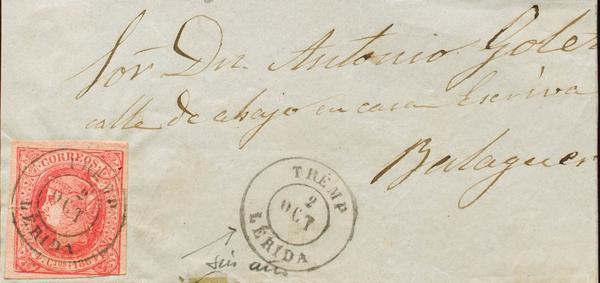 Sor Dn. Antonio Goler
calle de abajo en casa Escriva
Balaguer
CORREOS
4 CUOS 1864
TREMP
2
OCT
LÉRIDA
TREMP
2
OCT
LÉRIDA
sin año